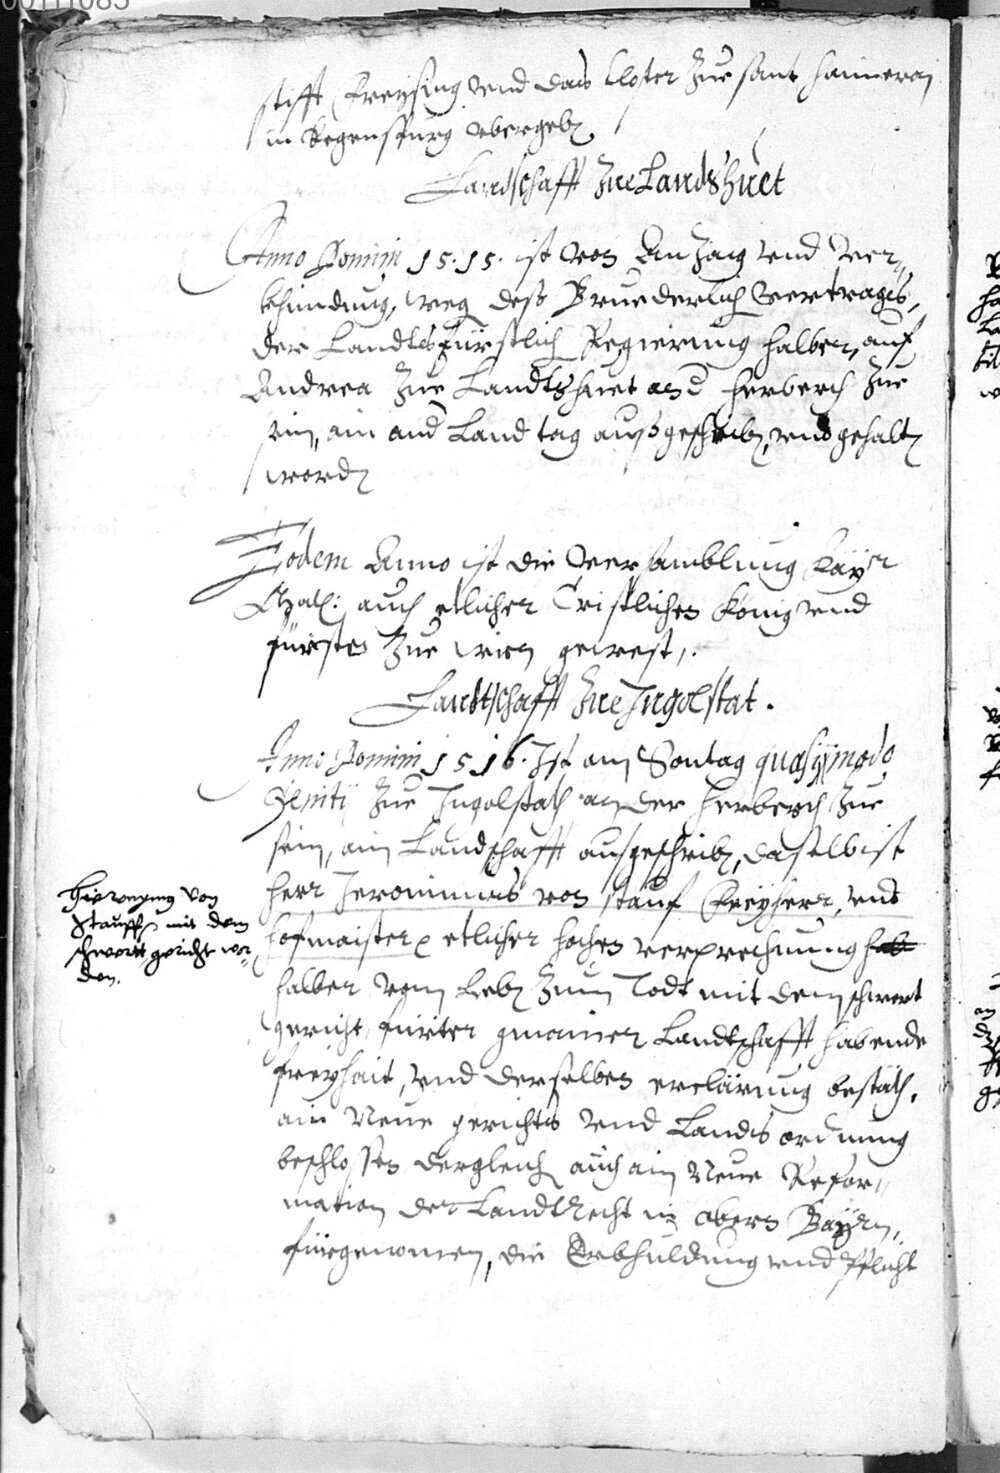 stifft Freysing vnd das Closter Zue sant Haimeran
in Regenspurg vbergeb
Landschafft Zue Landshuet
Anno Domini 1515. ist von Anzaig vnd Ver,,
khündung, weg deß Bruederlich Vertrages,
der Landtsfürstlich Regierung halben, auf
Andrea Zue Landtshuet an d Herberch Zue
sein, ain and Land tag außgeschrib, vnd gehalt
word
Eodem Anno ist die Versamblung Kay:r
May: auch etlicher Cristlichen König vnd
fürsten Zue Wien gewest,.
Landtschafft Zue Ingolstat.
Anno Domini 1516. Ist am Sontag quasymodo
Geniti Zue Ingolstath an der Herberch Zue
sein, ain Landschafft ausgeschrib, daselb ist
herr Jeronimus von Stauf Freyherr, vnd
hofmaister etlicher hochen verprechnung hab
halber vom Leb Zum Todt mit dem schwert
gericht, fürter gmainer Landtschafft habende
freyhait, vnd derselben erclärung bestäth,
ain Neue gerichts vnd Lands ordnung
beschlossen dergleich auch ain Neue Refor,,
mation der Landtrecht in obern Bayrn,
fürgenomen, die Erbhuldung vnd Pflicht
Hieronymus von
Stauff mit dem
schwertt gericht wor-
den.
00111085